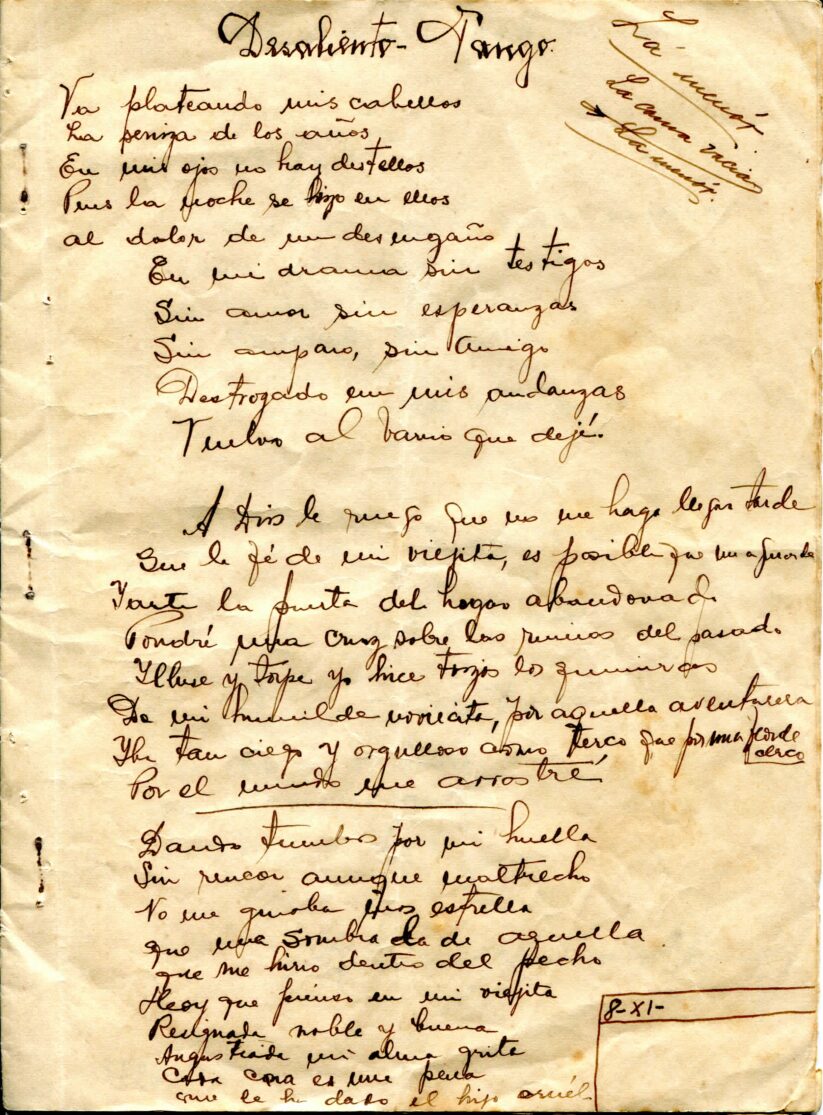 Desaliento - Tango.
La menór
La cama vacia
La menór.
Va plateando mis cabellos
La seniza de los años
En mis ojos no hay destellos
Pues la noche se hizo en ellos
al dolor de un desengaño
En mi drama sin testigos
Sin amor sin esperanzas
Sin amparo, sin amigo
Destrozado en mis andanzas
Vuelvo al barrio que dejé.
A Dios le ruego que no me haga llegar tarde
Que la fé de mi viejita, es posible que me aguarde
Y ante la puerta del hogar abandonado
Pondré una cruz sobre las ruinas del pasado
Iluse y torpe yo hice trizas las quimeras
De mi humilde noviecita, por aquella aventurera
Y fue tan ciego y orgulloso como terco que por una flor de
cerco
Por el mundo me arrostré
Dando tumbos por mi huella
Sin rencor aunque maltrecho
No me guiaba mas estrella
que una sombra la de aquella
que me hirio dentro del pecho
Hoy que pienso en mi viejita
Resignada noble y buena
Angustiada mi alma grita
Cada cana es una pena
que le ha dado el hijo cruél
8-XI-